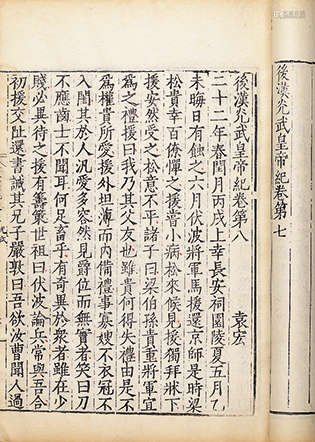 後漢光武皇帝紀卷第七
後漢光武皇帝紀卷第八
袁宏
二十二年春閏月丙戌上幸長安祠園陵夏五月乙
未晦日有蝕之六月伏波將軍馬援還京師是時梁
松貴幸百僚憚之援嘗小病松來候見援獨拜牀下
援安然受之松意不平諸子曰梁伯孫貴重將軍宜
為之禮援曰我乃其父友也雖貴何得失禮由是不
為權貴所愛援外坦薄而內備禮事寡嫂不衣冠不
入閨其於人汎愛多容然見爵位而無實者笑曰刀
不應齒士不聞耳何足畜乎有奇異於衆者雖在少
賤必異待之援有籌策世祖曰伏波論兵常與吾合
初援交阯還書誡其兄子嚴敦曰吾欲汝曹聞人過